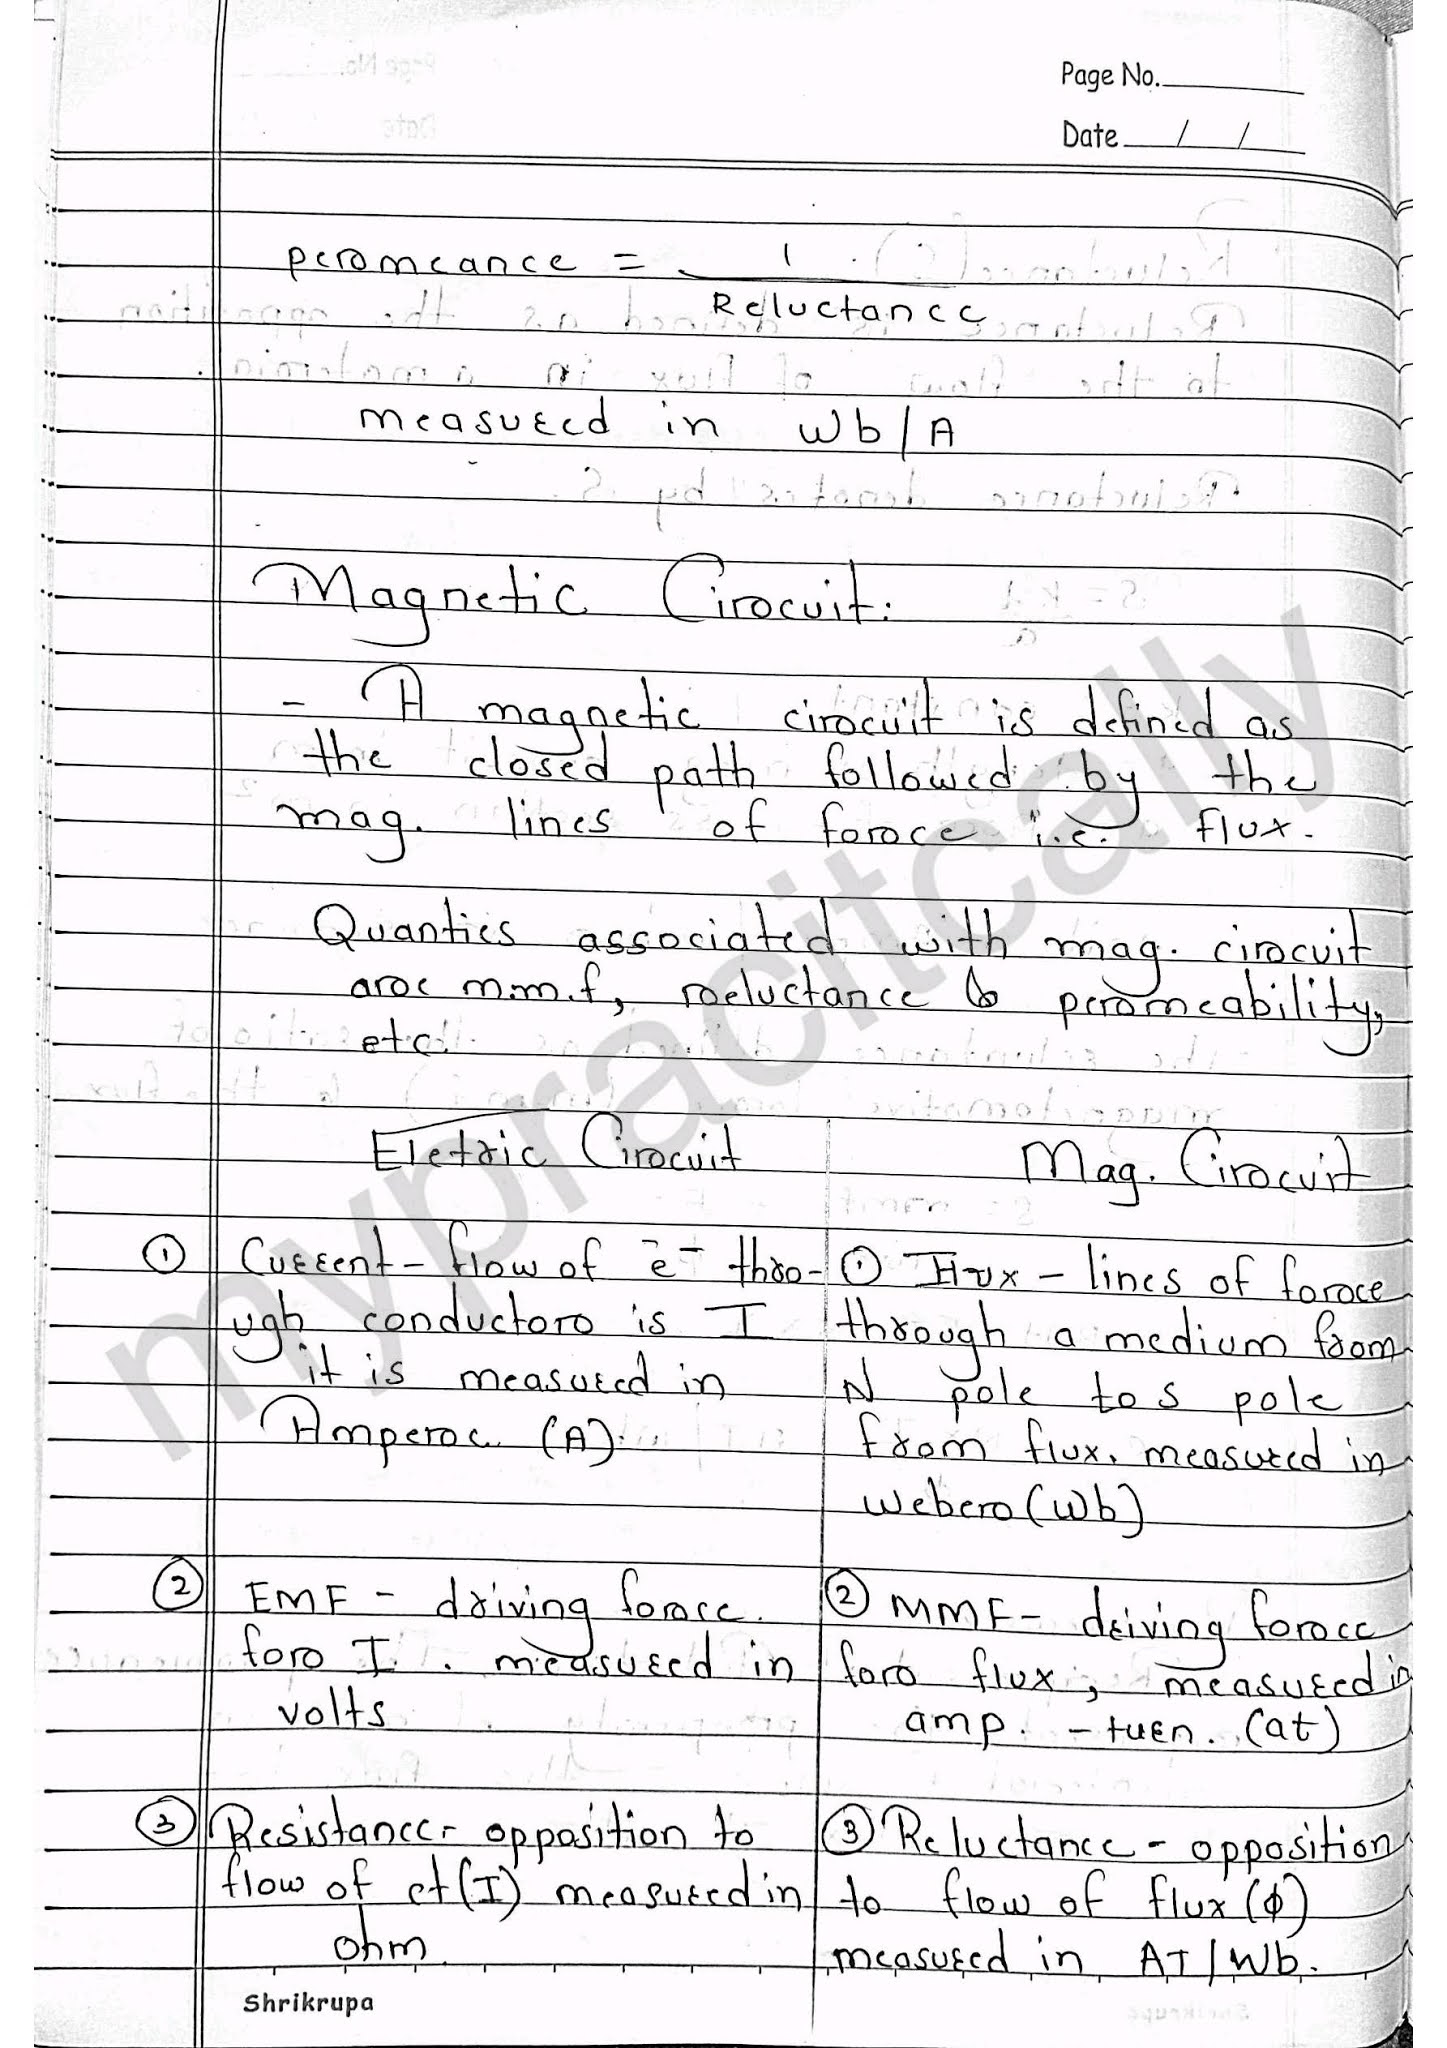 Page No.
Date / /
permeance = 1
Reluctance
measured in Wb/A
Magnetic Circuit:
- A magnetic circuit is defined as
the closed path followed by the
mag. lines of force i.e. flux.
Quanties associated with mag. circuit
are m.m.f, reluctance & permeability,
etc.
Eletric Circuit
Mag. Circuit
① Current - flow of e⁻ thro-
ugh conductor is I
it is measured in
Ampere (A)
① Flux - lines of force
through a medium from
N pole to S pole
from flux. measured in
weber (Wb)
② EMF - driving force
for I. measured in
volts
② MMF - driving force
for flux, measured in
amp. - turn. (at)
③ Resistance - opposition to
flow of ct (I) measured in
ohm
③ Reluctance - opposition
to flow of flux (ϕ)
measured in AT/Wb.
Shrikrupa
mypracitcally